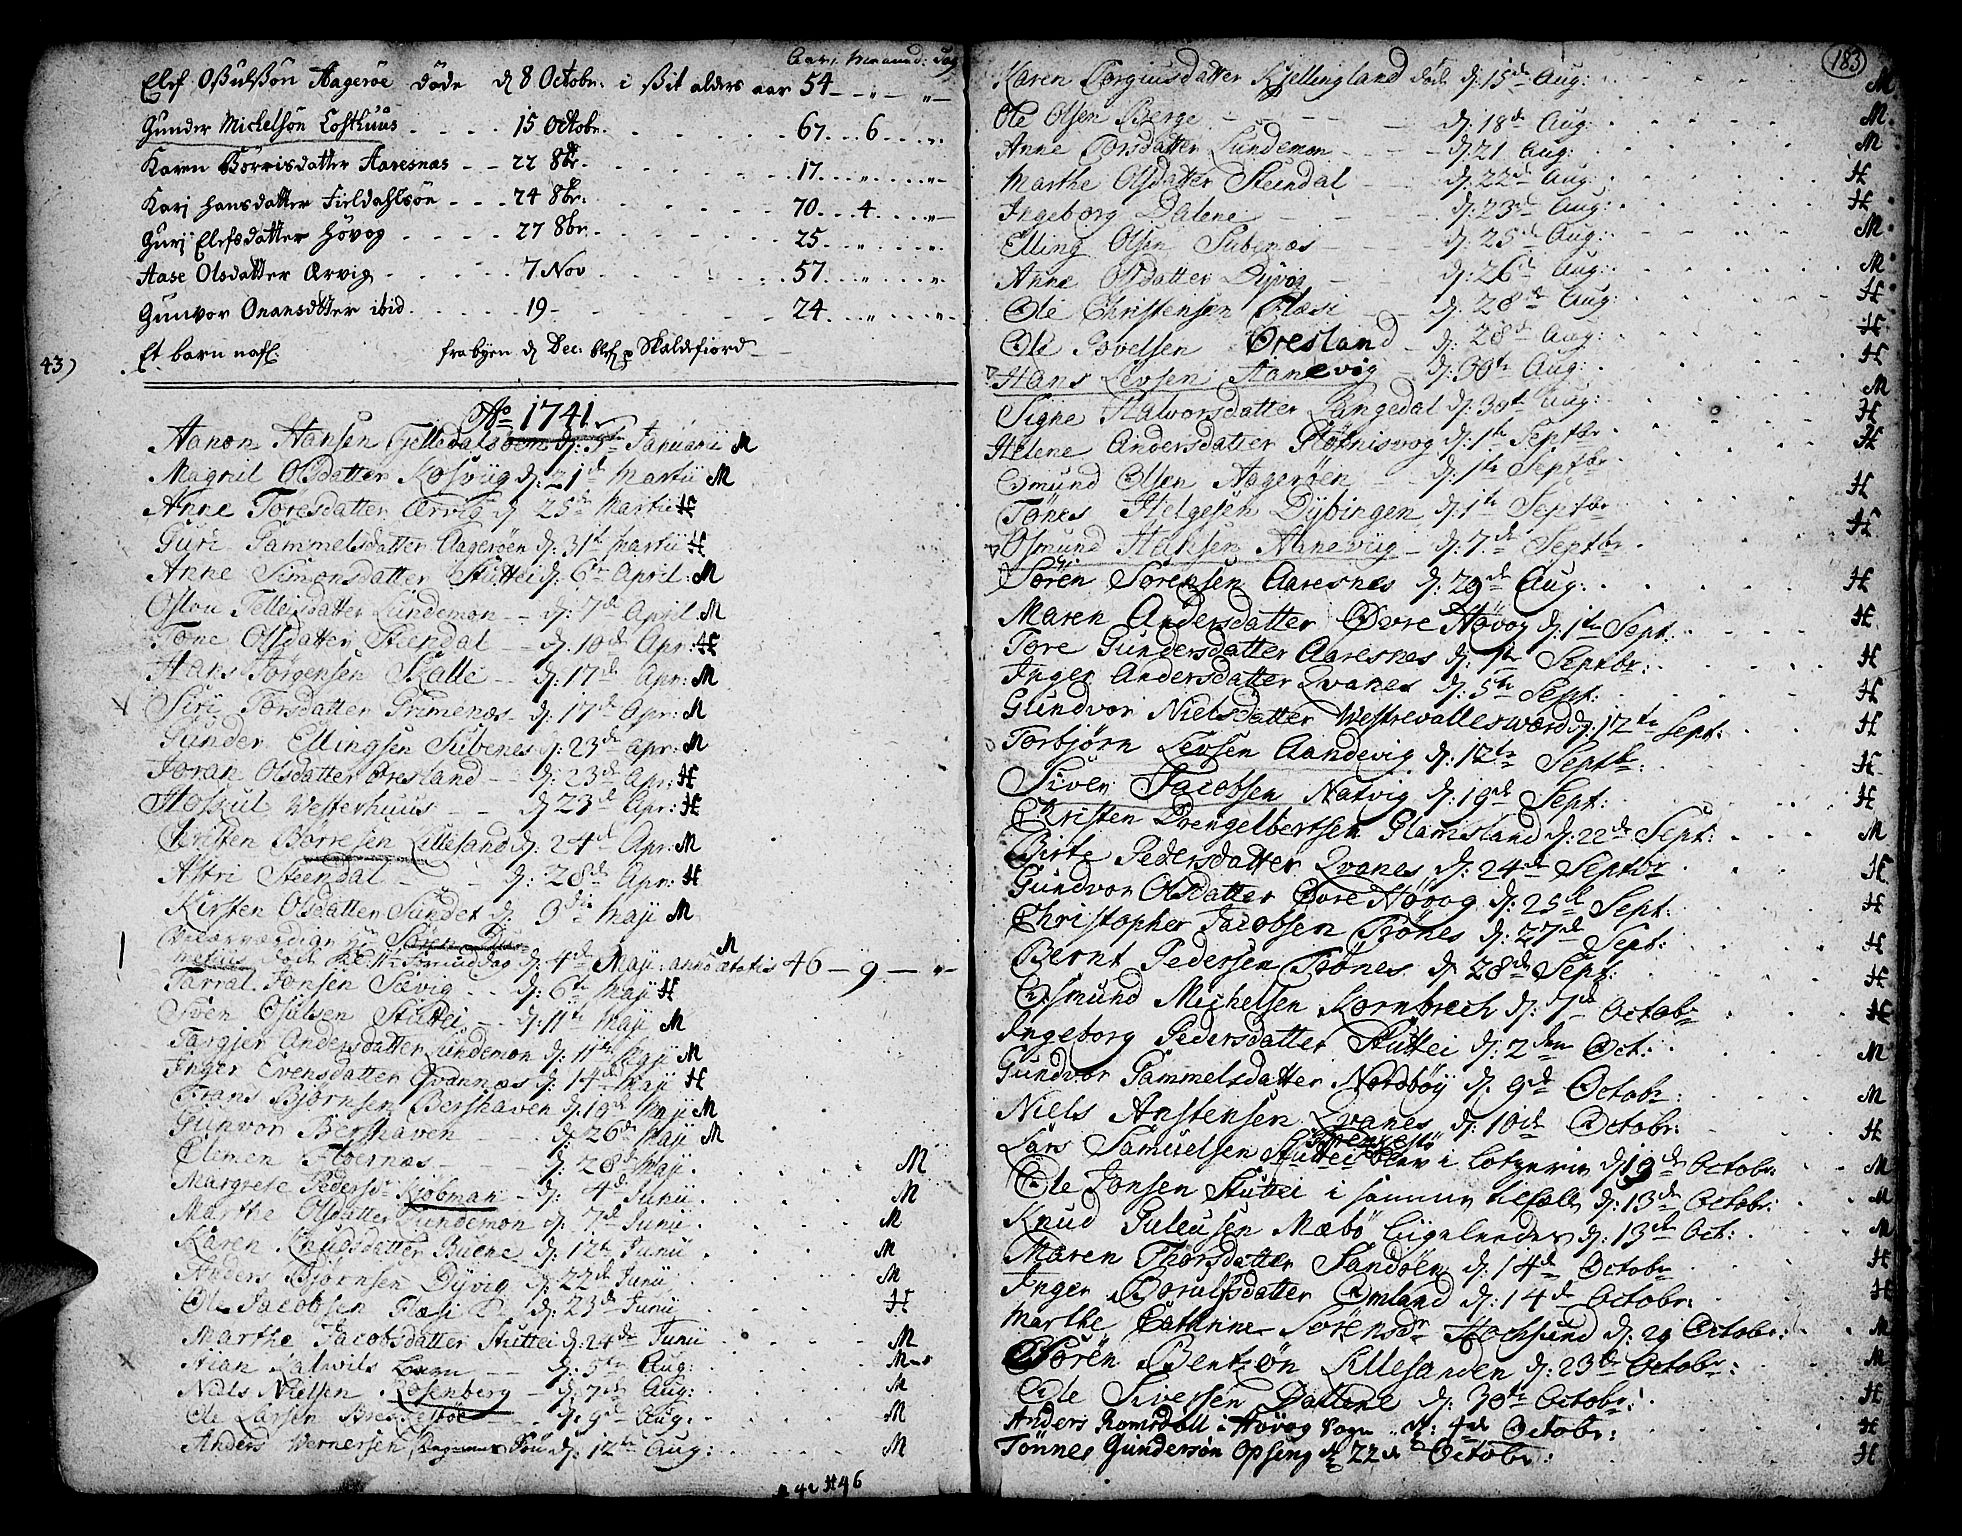 Aar: Maaned: Dag
Elef Oßulßøn Aagerøe døde d 8 Octobr: i sit alders aar 54 - „ - „ -
Gunder Michelsøn Losthuus 15 Octobr. 67 6 „
Karen Børrisdatter Aaresnæs 22 8br. 17 „ „
Kari Hansdatter Fieldahlsøe 24 8br. 70 4 „
Guri Elefsdatter Høvog 27 8br. 25 „ „
Aase Olsdatter Ærvig 7 Nov 57 „ „
Gunvor Onansdatter ibid 19 - 24 „ „
Et barn fra byen d Dec: Skaldefiord
43)
Ao 1741.
Aanon Hansen d: 5te Januarii M
Magnil Olsdatter Kosviig d: 21de Martii M
Anne Toresdatter Ærvig d 25de Martii H
Guri Gammelsdatter Aagerøen d: 31te Martii H
Anne Simonsdatter Stuttei d: 6te April: M
Oslou Tellefsdatter Lundemon d: 7de April M
Tone Olsdatter Steendal d: 10de Apr: H
Hans Jørgensen Skalle d: 17de Apr: M
Siri Torsdatter Grimenæs d: 17de Apr: M
Gunder Ellingsen Subenes d: 23de Apr: M
Joran Olsdatter Øresland d: 23de Apr: H
Hoskul Vesterhuus d 23de Apr: H
Christen Borresen Lillesand d: 24de Apr: M
Astri Steendal d: 28de Apr: H
Kirsten Olsdatter Sundet d: Maji M
Velærværdige Hr Søren
død kl. 11 formiddag d: 4de Maji: anno ætatis 46 - 9 - „ - M
Tarral Jonsen Sævig d: 6te Maji H
Sven Osulsen Stuttei d: 11te Maji M
Targier Andersdatter Lundemon d: 11te Maji M
Inger Evensdatter Qvannæs d: 14de Maji H
Frans Bjørnsen Bershaven d: 19de Maji M
Gunvor Bershaven d: 26de Maji M
Clemen d: 28de Maji. M
Margrete Pedersdr Kiøbman d: 4de Junii. M
Marthe Olsdatter Lundemon d: 7de Junii. M
Karen Knudsdatter Buene d: 12te Junii M
Anders Bjørnsen Dyvig d: 22de Junii M
Ole Jacobsen Flæsi d: 23de Junii H
Marthe Jacobsdatter Stuttei d: 24de Junii M
barn d: 5te Aug: M
Niels Nielsen Rosenberg d: 7de Aug: M
Ole Larsen Brekkestøe d: 9de Aug: M
Anders Wernersen d: 12te Aug: M
M 42 H 46
183
Karen Torgiusdatter Kjellingland død d: 15de Aug: M
Ole Olsen Berge d: 18de Aug: M
Anne Torsdatter Lundemon d: 21 Aug: M
Marthe Olsdatter Steendal d: 22de Aug: H
Ingeborg Dalene d: 23de Aug: H
Elling Olsen Subenæs d: 25de Aug: M
Anne Olsdatter Dyvig d: 26de Aug: M
Ole Christensen Flæsi d: 28de Aug: H
Ole Povelsen Øresland d: 28de Aug: H
Hans Levsen Aanevig d: 30te Aug: H
Signe Halvorsdatter Langedal d: 30te Aug: M
Helene Andersdatter Glørnisvog d: 1te Septbr H
Osmund Olsen Aagerøen d: 1te Septbr H
Tønes Helgesen Dybingen d: 1te Septbr H
Osmund Hansen Aaneviig d: 7de Septbr H
Søren Sørensen Aaresnes d: 29de Aug: H
Maren Andersdatter Øvre Høvog d: 1te Sept: H
Tore Gundersdatter Aaresnes d: 1te Septbr: H
Inger Andersdatter Qvanes d: 5te Sept: H
Gundvor Nielsdatter Westrevallesværd d: 12te Sept: H
Torbjørn Levsen Aandevig d: 12te Septbr: H
Siver Jacobsen Natvig d: 19de Sept: H
Christen Drengelbertsen Glamsland d: 22de Sept: M
Birte Pedersdatter Qvanes d: 24de Septbr H
Gundvor Olsdatter Øvre Høvog d: 25de Sept: H
Christopher Jacobsen Trønes d: 27de Sept: H
Bernt Pedersen Trønes d: 28de Sept: H
Osmund Michelsen Kornbrech d: 7de Octobr H
Ingeborg Pedersdatter Stuttei d: 2den Oct: M
Gundvor Gammelsdatter Nordbøy d: 9de Octobr: M
Niels Anstensen Qvanes d: 10de Octobr: H
Brekkestø
Lars Samuelsen Stuttei blev i Lotzerie d: 13de Octobr: M
Ole Jonsen Stuttei i samme tilfælde d: 13de Octobr: M
Knud Guleusen Mæbø ligeledes d: 13de Oct: M
Maren Thorsdatter Sandøen d: 14de Octobr H
Inger Borulfsdatter Omland d: 14de Octobr: H
Marthe Cathrine Sørensdr Hochsund d: 29 Octobr: M
Søren Bentzøn Lillesanden d: 23de Octobr: M
Ole Siversen Dallene d: 30te Octobr: H
Anders Romsdall i Høvog Sogn d: 4de Octobr: H
Tønnes Gundersøn Opseng d: 22de Octobr: H